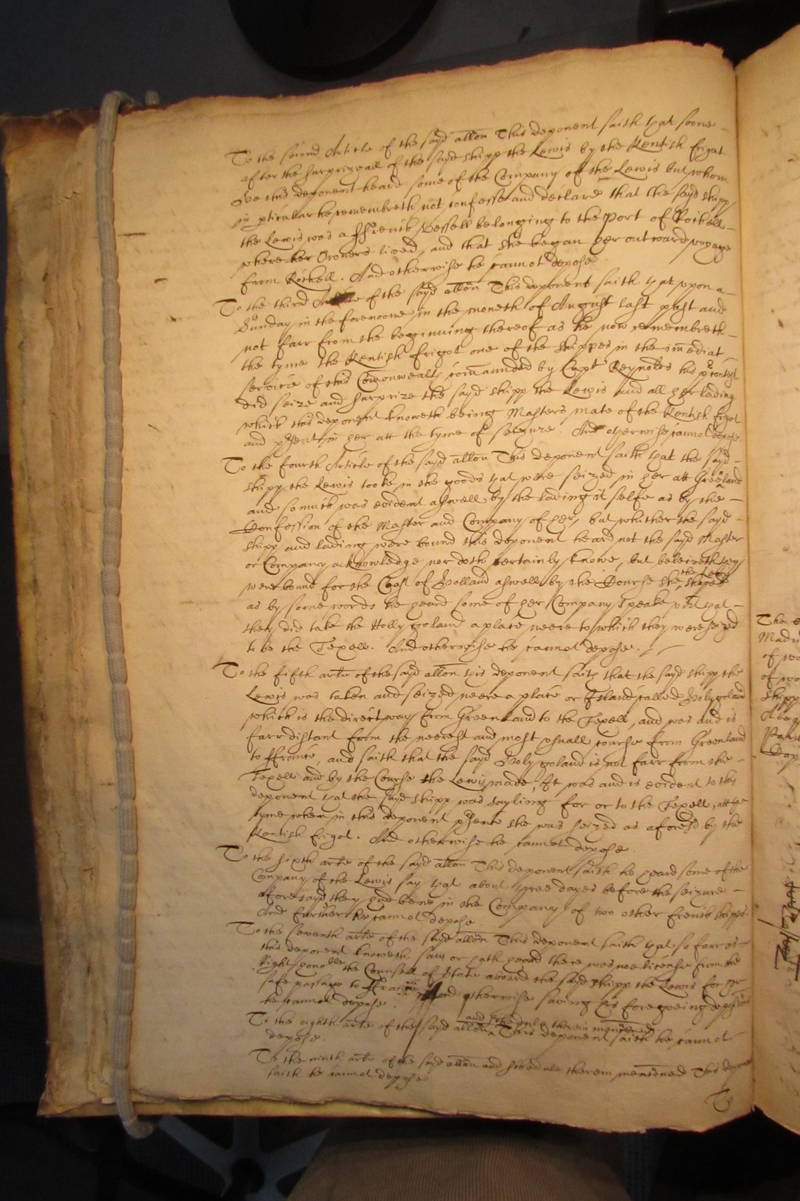 To the second Article of the sayd allon This deponent saith that soone
after the surprizall of the sayd shipp the Lewis by the Kentish frigat
hee this deponent heard some of the Company of the Lewis but whom
in pticular he remembreth not confesse and declare that the sayd shipp
the Lewis was a ffrench vessell belonging to the Port of Rochell
where her Owners lived, and that she began her outward voyage
from Rochell. And otherwise he cannot depose
To the third Article of the sayd allon This deponent saith that upon a
Sunday in the forenoone in the moneth of August last past and
not farr from the beginning thereof as he now remembreth
the tyme the Kentish frigot one of the shippes in the imediat
service of this Comonwealth comaunded by Capt Reynolds his
did seize and surprize the sayd shipp the Lewis and all her lading
which this deponent knoweth being Masters mate of the Kentish frigot
and psent in her att the tyme of seizure. And otherwise cannot depose
To the fourth Article of the sayd allon This deponent saith that the sayd
shipp the Lewis tooke in the goods that were seized in her att Greenland
and somuch was evident aswell by the lading it selfe as by the
Confession of the Master and Company of her, but whither the sayd
shipp and lading were bound this deponent heard not the sayd Master
or Company acknowledge nor doth certainly knowe, but beleiveth they
were bound for the Coast of Holland aswell by the Course she
as by some words he heard some of her Company speake vizt that
they did take the Holly goland a place neere to which they were seized
to be the Texell. And otherwise he cannot depose.
To the fifth arte of the sayd allon this deponent saith that the sayd shipp the
Lewis was taken and seized neere a place or Island called Holy goland
which is the direct way from Greenland to the Texell, and was and is
farr distant from the neerest and most usuall course from Greenland
to ffrance, and saith that the sayd Holy goland is not farr from the
Texell and by the Course the Lewis made, It was and is evident to this
deponent that the sayd shipp was sayling for or to the Texell, att the
tyme when in this deponent psence she was seized as aforesd by the
Kentish frigot. And otherwise he cannot depose
To the sixth arte of the sayd allon This deponent saith he heard some of the
Company of the Lewis say that about three dayes before the seizure
aforesayd they had bene in the Company of two other french shipps
And further he cannot depose
To the seventh arte of the sayd allon This deponent saith that so farr as
this deponent knoweth saw or hath heard there was noe licence from the
Right honoble the Counsell of State aboard the sayd shipp the Lewis for
safe passage to ffrance And otherwise saving his foregoeing
he cannot depose.
To the eighth arte of the sayd allon and schedule therein mentioned This deponent saith he cannot
depose
To the nineth arte of the sayd allon and schedule therein mentioned This deponent
saith he cannot depose
To